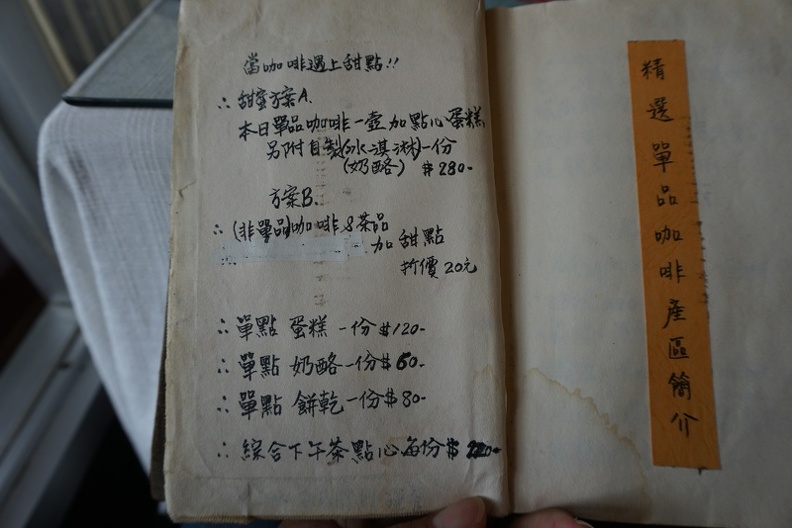 當咖啡遇上甜點!!
∴ 甜蜜方案A.
本日單品咖啡一壺加點心蛋糕
另附自製(冰淇淋)一份
(奶酪) $280-
方案B.
∴ (非單品)咖啡&茶品
加甜點
折價20元
∴ 單點 蛋糕 一份$120-
∴ 單點 奶酪一份$60-
∴ 單點 餅乾一份$80-
∴ 綜合下午茶點心每份$
精選單品咖啡產區簡介